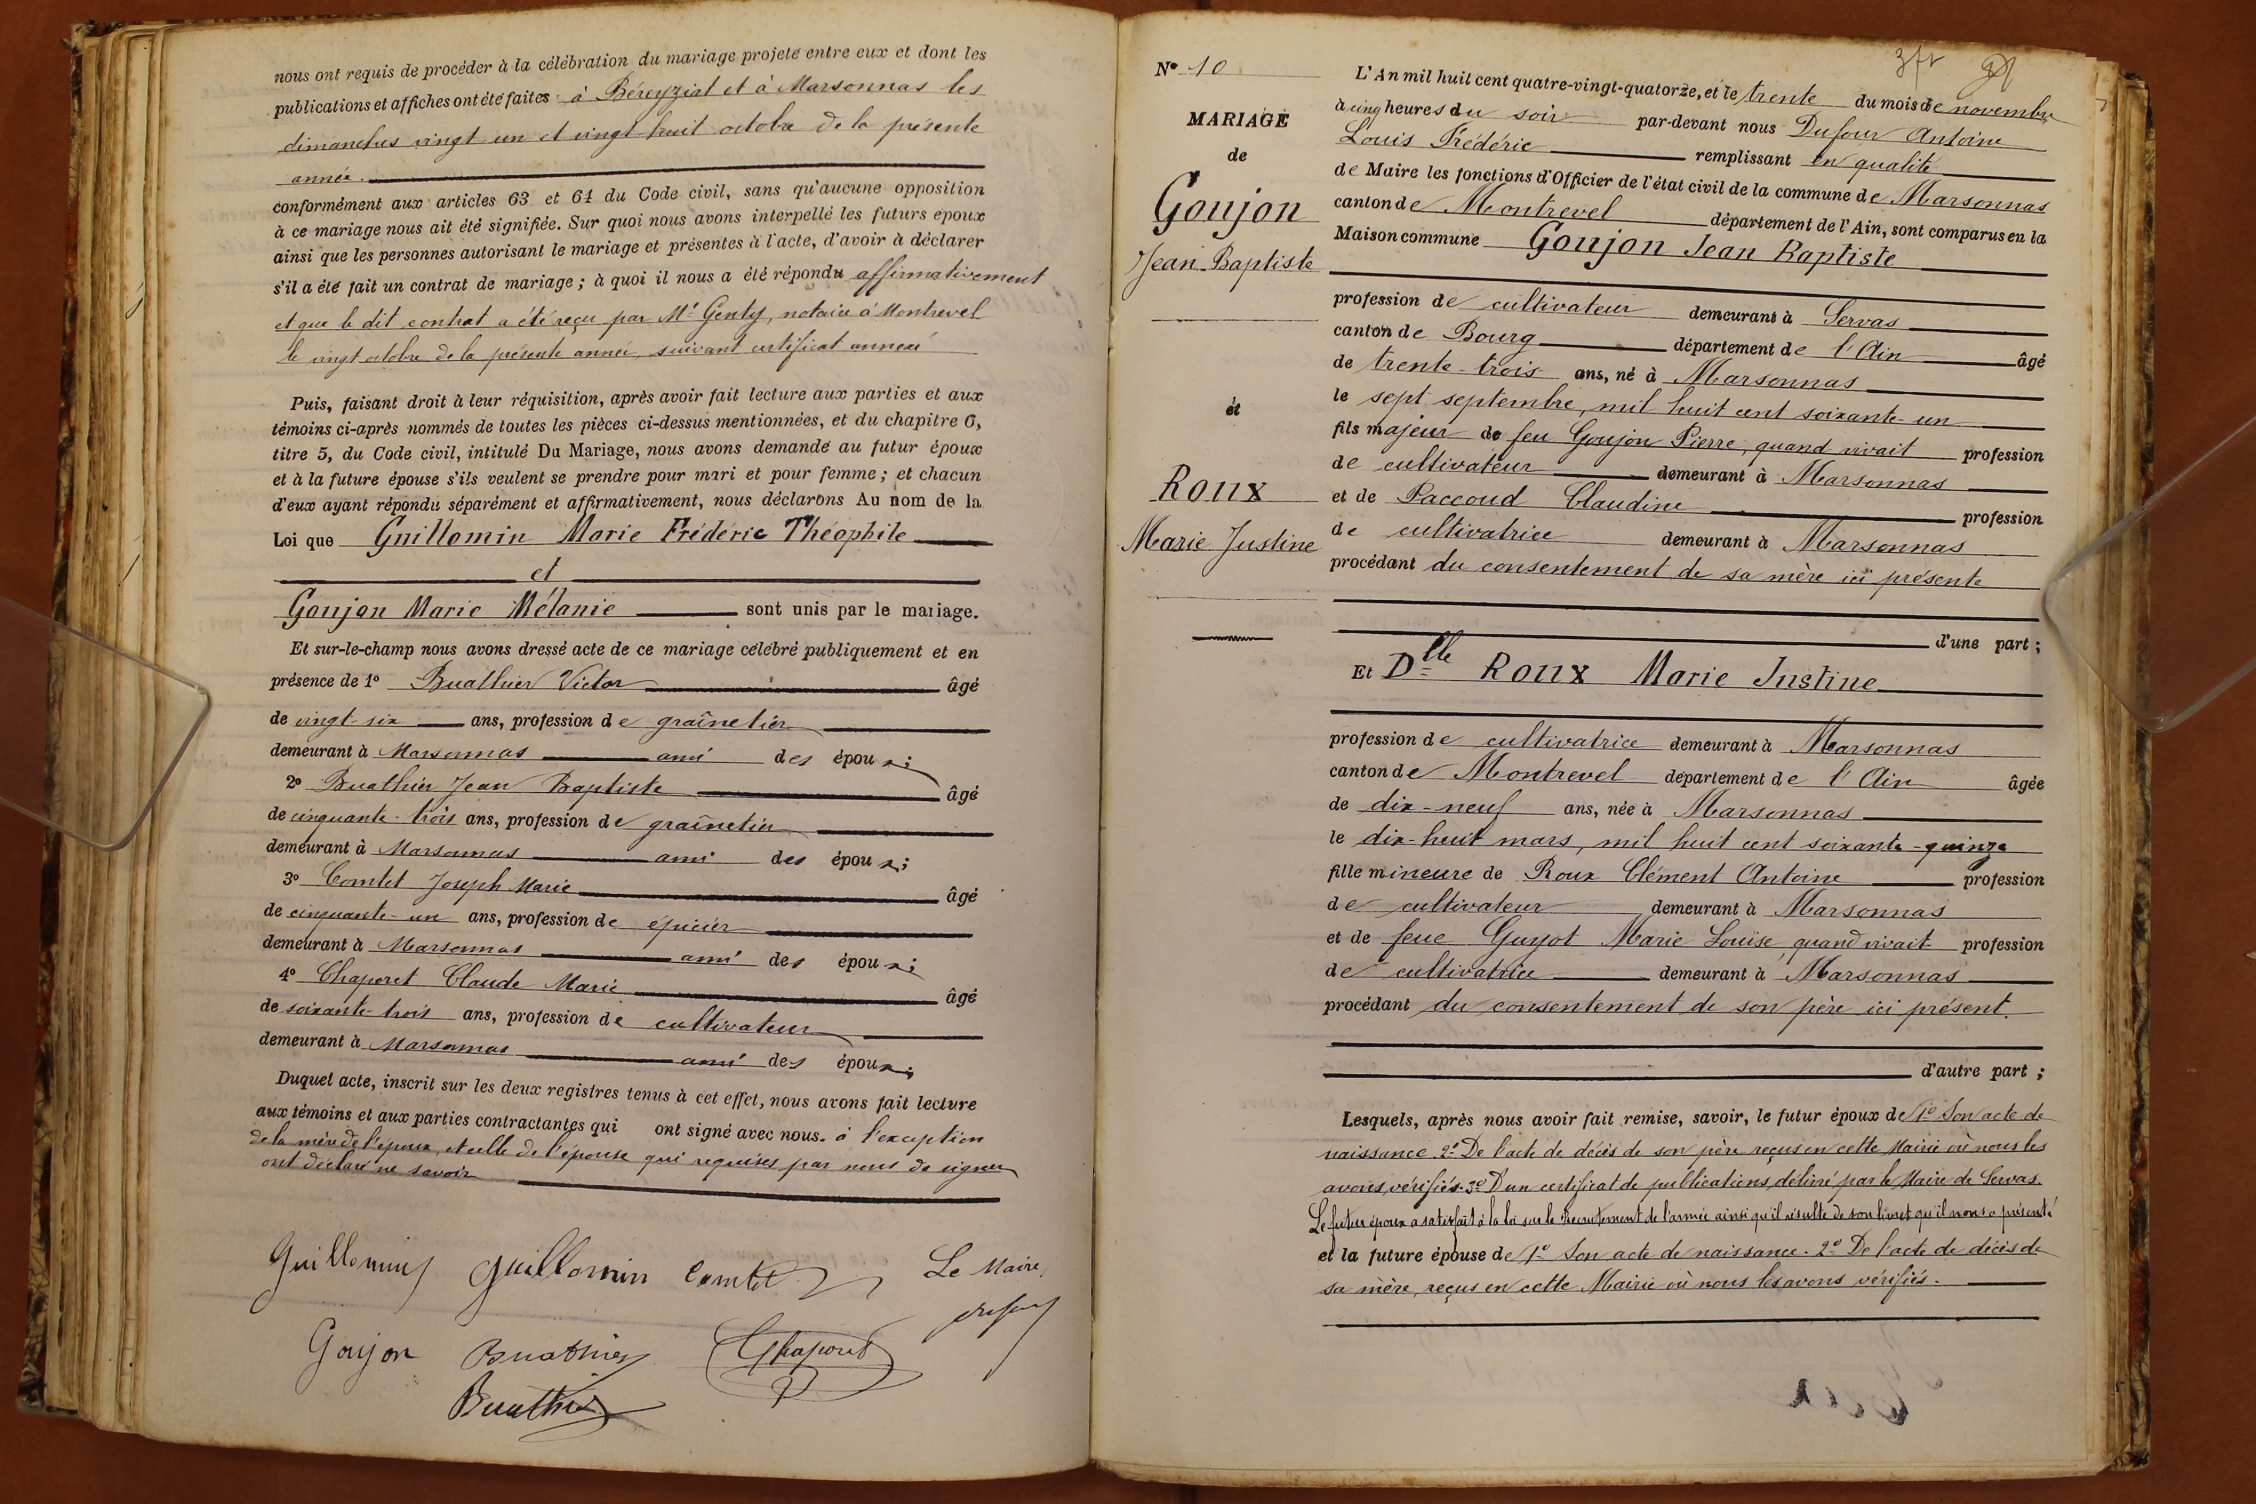 nous ont requis de procéder à la célébration du mariage projeté entre eux et dont les
publications et affiches ont été faites à Béreyziat et à Marsonnas les
dimanches vingt un et vingt-huit octobre de la présente
année.
conformément aux articles 63 et 64 du Code civil, sans qu'aucune opposition
à ce mariage nous ait été signifiée. Sur quoi nous avons interpellé les futurs époux
ainsi que les personnes autorisant le mariage et présentes à l'acte, d'avoir à déclarer
s'il a été fait un contrat de mariage; à quoi il nous a été répondu affirmativement
et que le dit contrat a été reçu par Me Genty, notaire à Montrevel
le vingt octobre de la présente année, suivant certificat annexé
Puis, faisant droit à leur réquisition, après avoir fait lecture aux parties et aux
témoins ci-après nommés de toutes les pièces ci-dessus mentionnées, et du chapitre 6,
titre 5, du Code civil, intitulé Du Mariage, nous avons demandé au futur époux
et à la future épouse s'ils veulent se prendre pour mari et pour femme; et chacun
d'eux ayant répondu séparément et affirmativement, nous déclarons Au nom de la
Loi que Guillomin Marie Frédéric Théophile
et
Goujon Marie Mélanie sont unis par le mariage.
Et sur-le-champ nous avons dressé acte de ce mariage célébré publiquement et en
présence de 1° Buathier Victor âgé
de vingt-six ans, profession de graînetier
demeurant à Marsonnas ami des époux;
2° Buathier Jean Baptiste âgé
de cinquante-trois ans, profession de graînetier
demeurant à Marsonnas ami des époux;
3° Comtet Joseph Marie âgé
de cinquante-un ans, profession de épicier
demeurant à Marsonnas ami des époux;
4° Chaporet Claude Marie âgé
de soixante-trois ans, profession de cultivateur
demeurant à Marsonnas ami des époux;
Duquel acte, inscrit sur les deux registres tenus à cet effet, nous avons fait lecture
aux témoins et aux parties contractantes qui ont signé avec nous. à l'exception
de la mère de l'époux, et celle de l'épouse qui requises par nous de signer
ont déclaré ne savoir
Guillomin Guillomin Comtet Le Maire,
Goujon Buathier Chaporet Dufour
Buathier
N° 10
MARIAGE
de
Goujon
Jean-Baptiste
et
Roux
Marie Justine
3fr
L'An mil huit cent quatre-vingt-quatorze, et le trente du mois de novembre
à cinq heures du soir par-devant nous Dufour Antoine
Louis Frédéric remplissant en qualité
de Maire les fonctions d'Officier de l'état civil de la commune de Marsonnas
canton de Montrevel département de l'Ain, sont comparus en la
Maison commune Goujon Jean Baptiste
profession de cultivateur demeurant à Servas
canton de Bourg département de l'Ain âgé
de trente-trois ans, né à Marsonnas
le sept septembre, mil huit cent soixante-un
fils majeur de feu Goujon Pierre, quand vivait profession
de cultivateur demeurant à Marsonnas
et de Paccoud Claudine profession
de cultivatrice demeurant à Marsonnas
procédant du consentement de sa mère ici présente
d'une part;
Et Dlle Roux Marie Justine
profession de cultivatrice demeurant à Marsonnas
canton de Montrevel département de l'Ain âgée
de dix-neuf ans, née à Marsonnas
le dix-huit mars, mil huit cent soixante-quinze
fille mineure de Roux Clément Antoine profession
de cultivateur demeurant à Marsonnas
et de feue Guyot Marie Louise, quand vivait profession
de cultivatrice demeurant à Marsonnas
procédant du consentement de son père ici présent.
d'autre part;
Lesquels, après nous avoir fait remise, savoir, le futur époux de 1° Son acte de
naissance 2° De l'acte de décès de son père reçus en cette Mairie où nous les
avons vérifiés. 3° D'un certificat de publications, délivré par le Maire de Servas.
Le futur époux a satisfait à la loi sur le recrutement de l'armée ainsi qu'il résulte de son livret qu'il nous a présenté
et la future épouse de 1° Son acte de naissance. 2° De l'acte de décès de
sa mère, reçus en cette Mairie où nous les avons vérifiés.